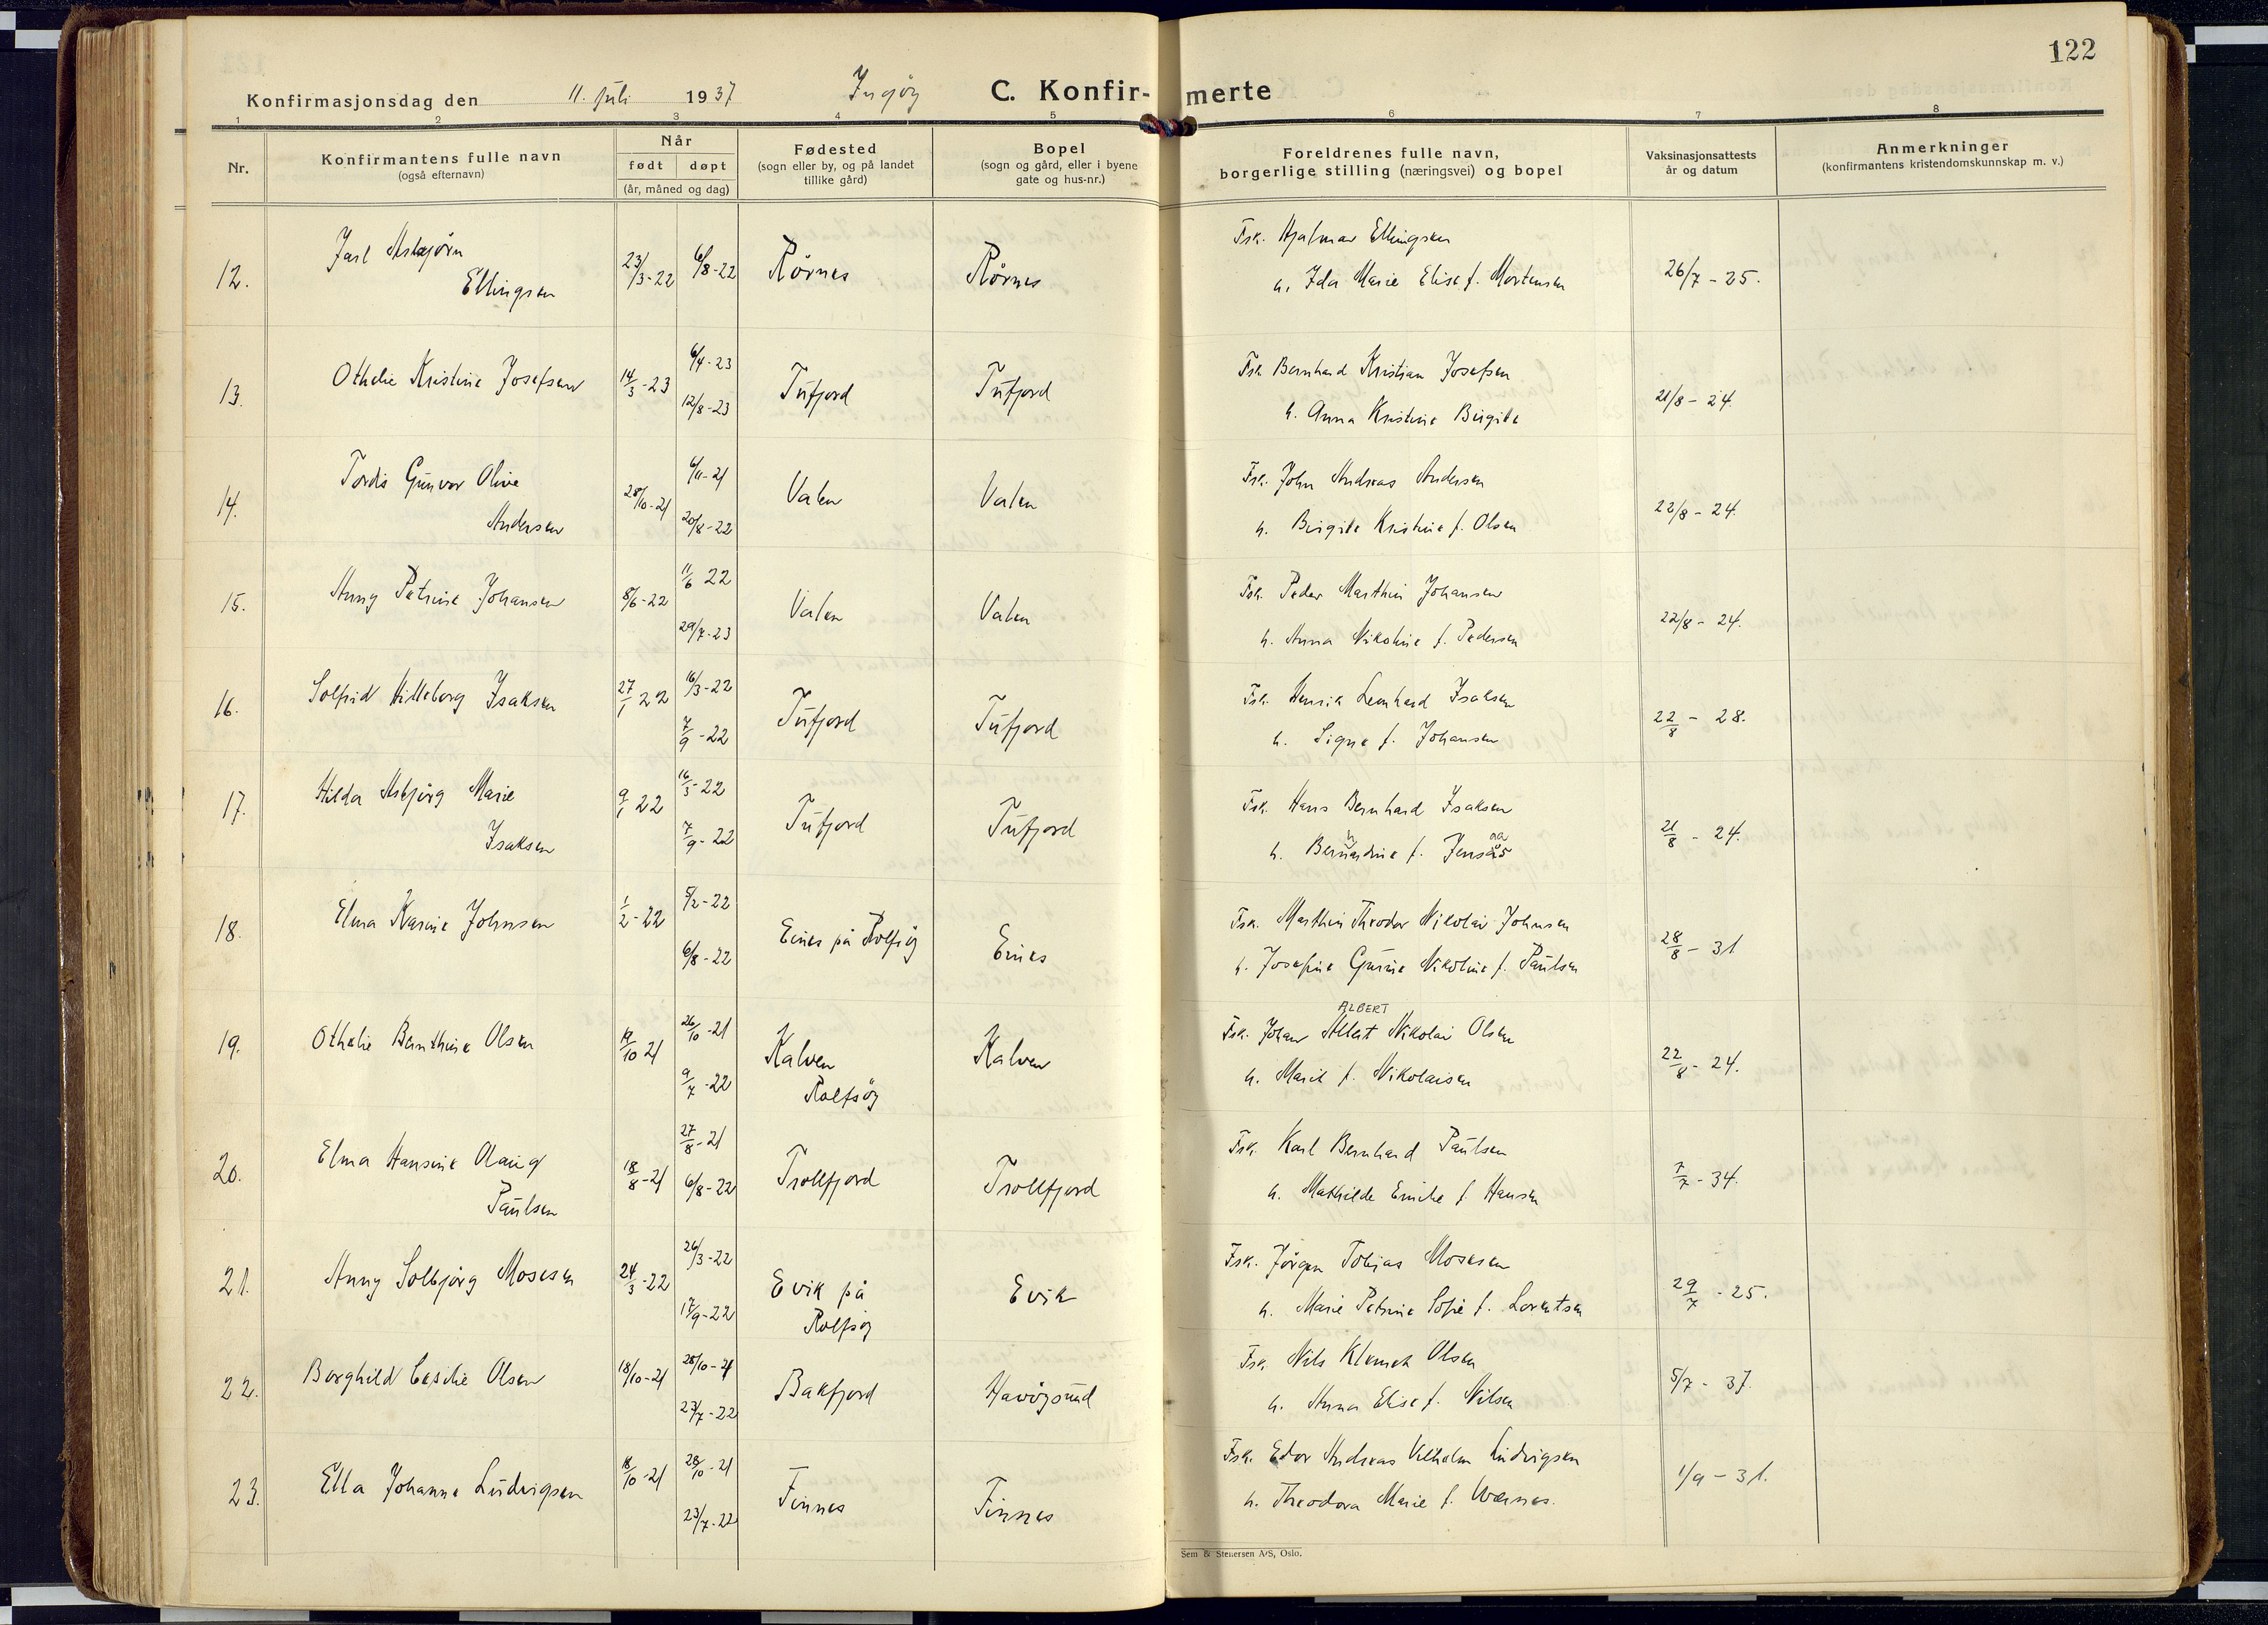 122
Konfirmasjonsdag den 11. juli 1937 Ingøy C. Konfirmerte
1 2 3 4 5 6 7 8
Nr.
Konfirmantens fulle navn
(også efternavn)
Når
født døpt
(år, måned og dag)
Fødested
(sogn eller by, og på landet
tillike gård)
Bopel
(sogn og gård, eller i byene
gate og hus-nr.)
Foreldrenes fulle navn,
borgerlige stilling (næringsvei) og bopel
Vaksinasjonsattests
år og datum
Anmerkninger
(konfirmantens kristendomskunnskap m. v.)
12. Jarl Asbjørn
Ellingsen
23/3-22 6/8-22 Rørnes Rørnes
Fsk. Hjalmar Ellingsen
h. Ida Marie Elise f. Mortensen
26/7 - 25.
13. Othelie Kristine Josefsen
14/3-23 6/4-23
12/8-23
Tufjord Tufjord
Fsk. Bernhard Kristian Josefsen
h. Anna Kristine Birgite
21/8 - 24.
14. Tordis Gunvor Olive
Andersen
28/10-21 6/11-21
20/8-22
Valen Valen
Fsk. John Andreas Andersen
h. Birgite Kristine f. Olsen
22/8 - 24.
15. Anny Petrine Johansen
8/6-22 11/6 22
29/7-23
Valen Valen
Fsk. Peder Marthin Johansen
h. Anna Nikoline f. Pedersen
22/8 - 24.
16. Solfrid Hilleborg Isaksen
27/1 22 16/3-22
7/9-22
Tufjord Tufjord
Fsk. Henrik Leonhard Isaksen
h. Signe f. Johansen
22/8 - 28.
17. Hilda Asbjørg Marie
Isaksen
9/1 22 16/3-22
7/9-22
Tufjord Tufjord
Fsk. Hans Bernhard Isaksen
h. Bernhardine f. Jensaas
21/8 - 24.
18. Elma Karine Johnsen
1/2-22 5/2-22
6/8-22
Eines på Rolfsøy Eines
Fsk. Marthin Theodor Nikolai Johnsen
h. Josefine Gurine Nikoline f. Paulsen
28/8 - 31
19. Othelie Bernthine Olsen
19/10 21 26/10-21
9/7-22
Kalven
Rolfsøy
Kalven
ALBERT
Fsk. Johan Albert Nikolai Olsen
h. Marit f. Nikolaisen
22/8 - 24.
20. Elma Hansine Olaug
Paulsen
18/8-21 27/8-21
6/8-22
Trollfjord Trollfjord
Fsk. Karl Bernhard Paulsen
h. Mathilde Emilie f. Hansen
7/7 - 34.
21. Anny Solbjørg Mosesen
24/3-22 26/3-22
17/9-22
Evik på
Rolfsøy
Evik
Fsk. Jørgen Tobias Mosesen
h. Marie Petrine Sofie f. Lorentsen
29/7 - 25.
22. Borghild Cesilie Olsen
18/10-21 28/10-21
23/7-22
Bakfjord Havøysund
Fsk. Nils Klemet Olsen
h. Anna Elise f. Nilsen
5/7 - 37.
23. Ella Johanne Ludvigsen
18/10-21 28/10-21
23/7-22
Finnes Finnes
Fsk. Edor Andreas Vilhelm Ludvigsen
h. Theodora Marie f. Værnes.
1/9 - 31.
Sem & Stenersen A/S, Oslo.